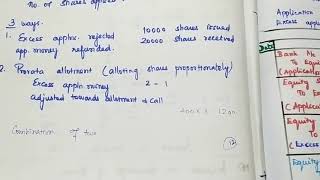 no. of shares applied
3 ways.
1. Excess applns. rejected 10000 shares issued
app. money refunded. 20000 shares received
2. Prorata allotment (alloting shares proportionately)
Excess appln money 2 - 1
adjusted towards allotment & call
Combination of two
12
Application
Excess appl
Date
Bank
To Equi
(Applicatio
Equity S
To E
(Applicati
Equity
To E
(Excess
Equity
To E